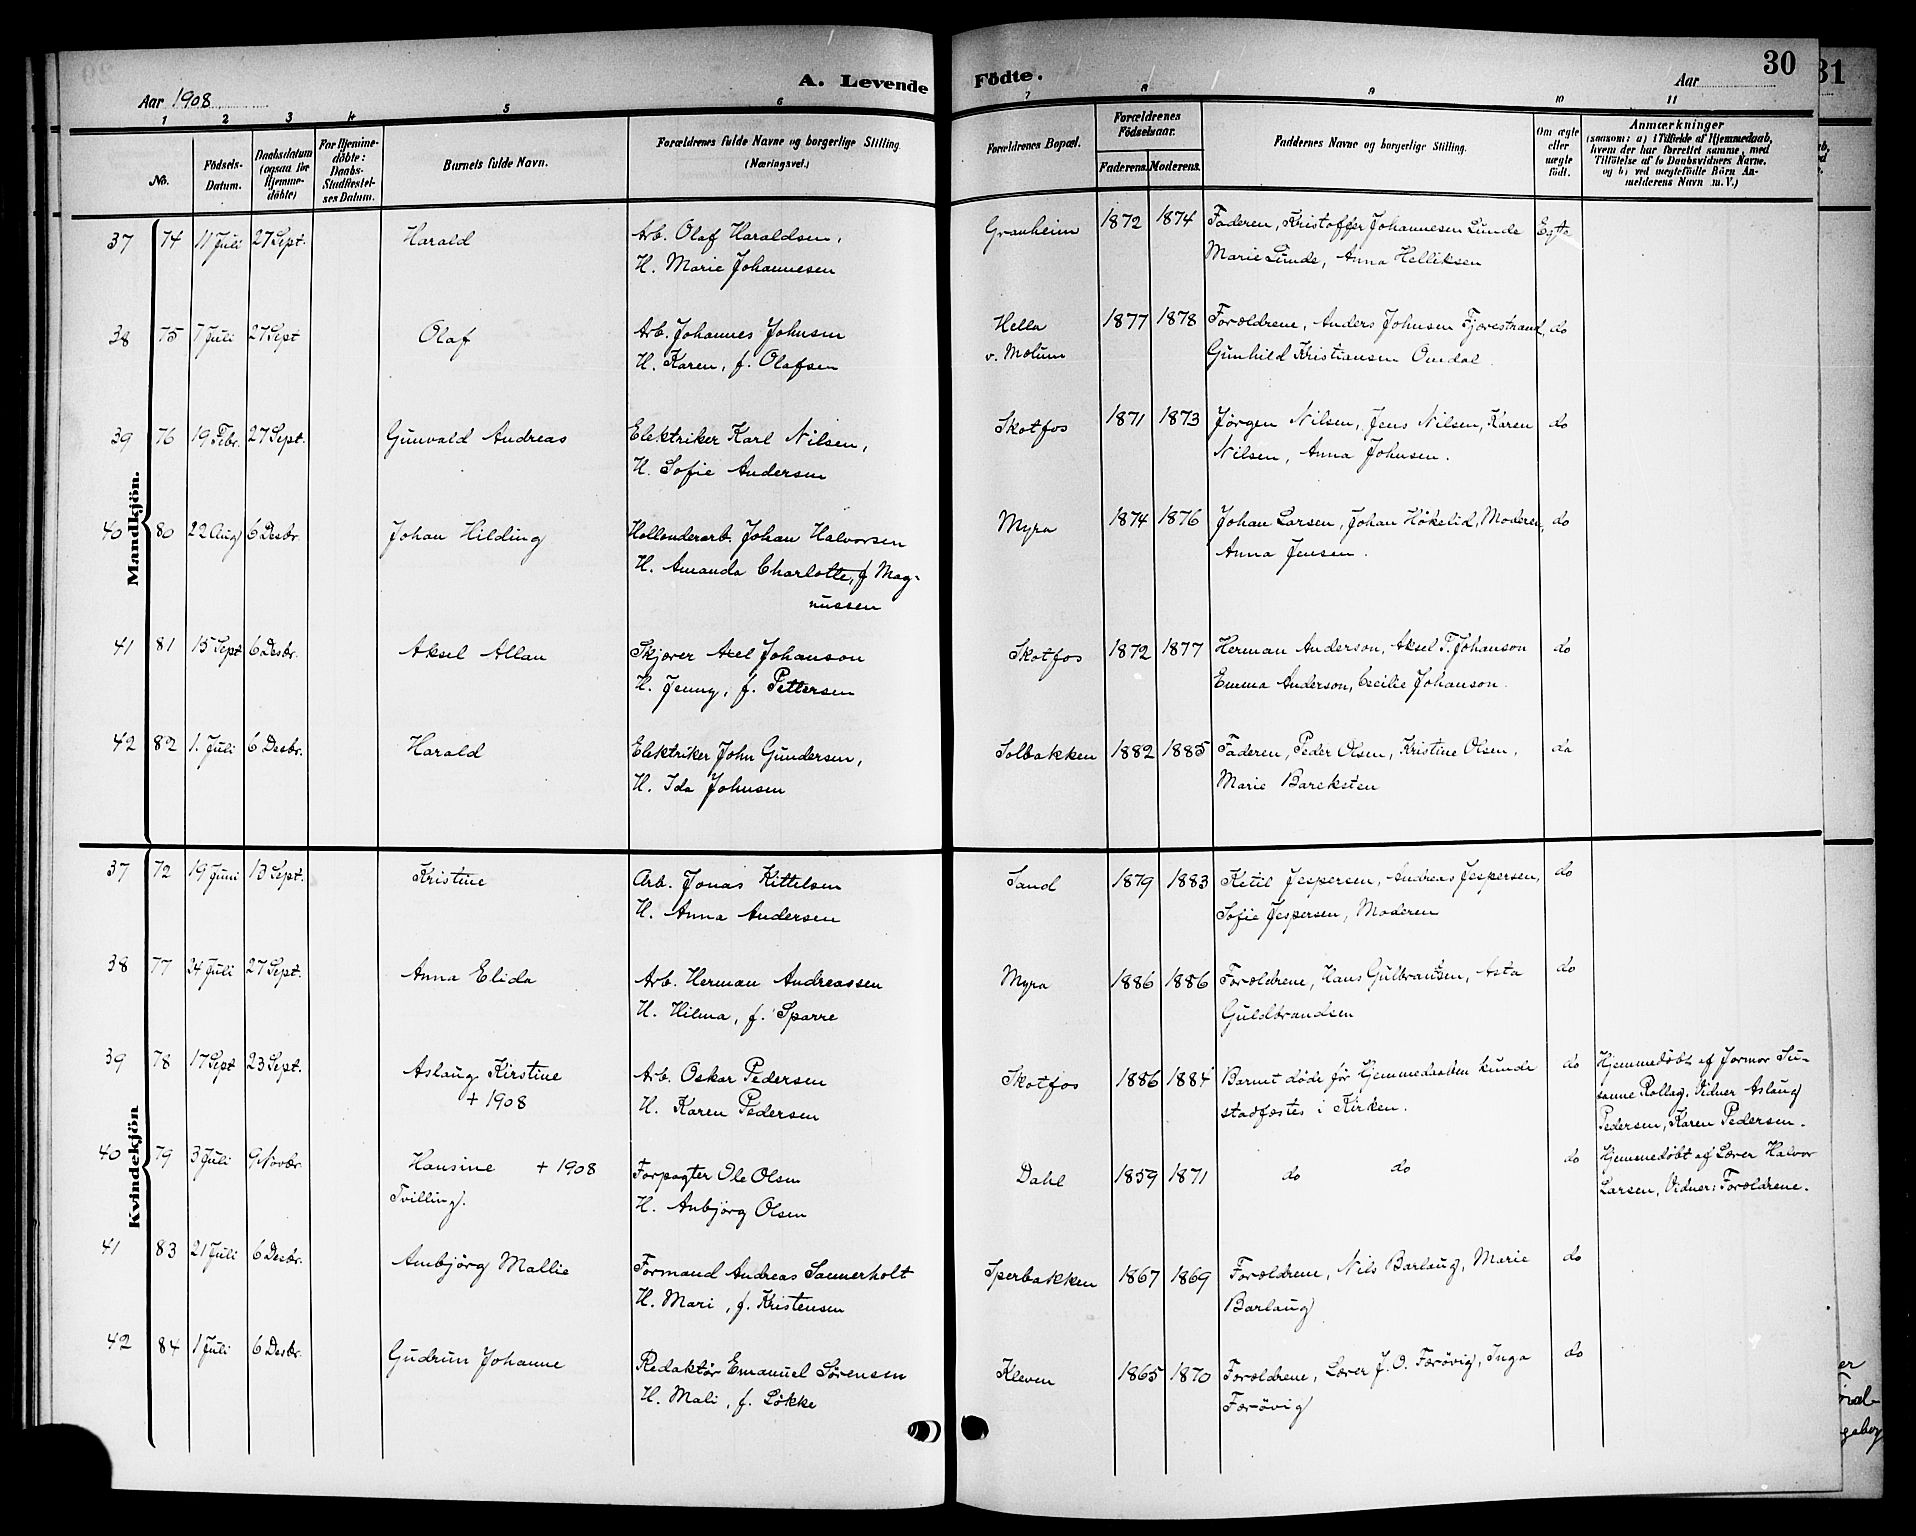 A. Levende Födte.
30
31
Aar 1908
Aar
1 2 3 4 5 6 7 8 9 10 11
No.
Födsels-Datum.
Daabsdatum (ogsaa for Hjemme-döbte)
For Hjemme-döbte: Daabs-Stadfæstel-ses Datum.
Barnets fulde Navn.
Forældrenes fulde Navne og borgerlige Stilling. (Næringsvei.)
Forældrenes Bopæl.
Forældrenes Födselsaar.
Faderens. Moderens.
Faddernes Navne og borgerlige Stilling.
Om ægte eller uægte födt.
Anmærkninger
(saasom: a) i Tilfælde af Hjemmedaab, hvem der har forrettet samme, med Tilföielse af to Daabsvidners Navne. og b) ved uægtefödte Börn An-melderens Navn m. V.)
Mandkjön.
37 74 11 Juli 27 Sept. Harald Arb. Olaf Haraldsen, Granheim 1872 1874 Faderen, Kristoffer Johannesen Lunde Egte
H. Marie Johannesen Marie Lunde, Anna Helliksen
38 75 7 Juli 27 Sept Olaf Arb. Johannes Johnsen Hella 1877 1878 Forældrene, Anders Johnsen Fjærestrand, do
H. Karen, f. Olafsen v. Molum Gunhild Kristiansen Omdal.
39 76 19 Febr. 27 Sept. Gunvald Andreas Elektriker Karl Nilsen, Skotfos 1871 1873 Jørgen Nilsen, Jens Nilsen, Karen do
H. Sofie Andersen Nilsen, Anna Johnsen.
40 80 22 Aug 6 Desbr. Johan Hilding Hollenderarb. Johan Halvorsen Myra 1874 1876 Johan Larsen, Johan Høkelid, Moderen, do
H. Amanda Charlotte, f Mag- Anna Jensen.
nussen
41 81 15 Sept 6 Desbr. Aksel Allan Skjærer Axel Johanson Skotfos 1872 1877 Herman Anderson, Aksel T. Johanson do
H. Jenny, f. Pettersen Emma Anderson, Cecilie Johanson.
42 82 1. Juli 6 Desbr. Harald Elektriker John Gundersen, Solbakken 1882 1885 Faderen, Peder Olsen, Kristine Olsen, do
H. Ida Johnsen Marie Bareksten
Kvindekjön
37 72 19 Juni 13 Sept. Kristine Arb. Jonas Kittelsen Sand 1879 1883 Ketil Jespersen, Andreas Jespersen, do
H. Anna Andersen Sofie Jespersen, Moderen
38 77 24 Juli 27 Sept. Anna Elida Arb. Herman Andreassen Myra 1886 1886 Forældrene, Hans Gulbrantsen, Asta do
H. Hilma, f. Sparre Guldbrandsen
39 78 17 Sept 23 Sept. Aslaug Kirstine Arb. Oskar Pedersen Skotfos 1886 1884 Barnet døde før Hjemmedaaben kunde do Hjemmedøbt af Jormor Su-
+ 1908 H. Karen Pedersen stadfæstes i Kirken. sanne Rollag. Vidner Aslaug
Pedersen, Karen Pedersen.
40 79 3 Juli 9 Novbr. Hansine + 1908 Forpagter Ole Olsen Dahl 1859 1871 do do do Hjemmedøbt af Lærer Halvor
Tvilling. H. Anbjørg Olsen Larsen, Vidner: Forældrene.
41 83 21 Juli 6 Desbr. Ambjørg Mallie Formand Andreas Sannerholt Sperbakken 1867 1869 Forældrene, Nils Barlaug, Marie do
H. Mari, f. Kristensen Barlaug
42 84 1 Juli 6 Desbr. Gudrun Johanne Redaktør Emanuel Sørensen Kleven 1865 1870 Forældrene, Lærer J. O. Færøvig, Inga do
H. Mali, f. Løkke Færøvig